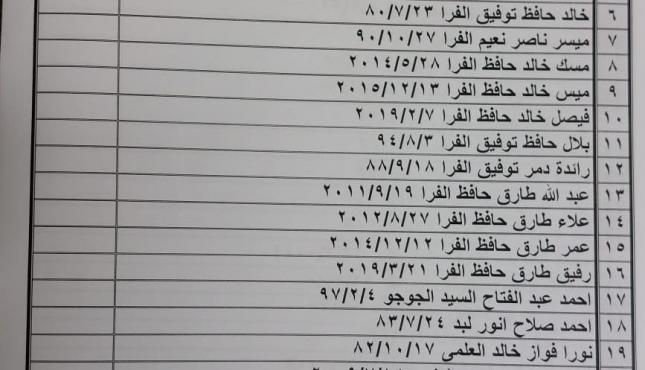 ٦ خالد حافظ توفيق الفرا ٨٠/٧/٢٣
٧ ميسر ناصر نعيم الفرا ٩٠/١٠/٢٧
٨ مسك خالد حافظ الفرا ٢٠١٤/٥/٢٨
٩ ميس خالد حافظ الفرا ٢٠١٥/١٢/١٣
١٠ فيصل خالد حافظ الفرا ٢٠١٩/٢/٧
١١ بلال حافظ توفيق الفرا ٩٤/٨/٣
١٢ رائدة دمر توفيق الفرا ٨٨/٩/١٨
١٣ عبد الله طارق حافظ الفرا ٢٠١١/٩/١٩
١٤ علاء طارق حافظ الفرا ٢٠١٢/٨/٢٧
١٥ عمر طارق حافظ الفرا ٢٠١٤/١٢/١٢
١٦ رفيق طارق حافظ الفرا ٢٠١٩/٣/٢١
١٧ احمد عبد الفتاح السيد الجوجو ٩٧/٢/٤
١٨ احمد صلاح انور لبد ٨٣/٧/٢٤
١٩ نورا فواز خالد العلمي ٨٢/١٠/١٧